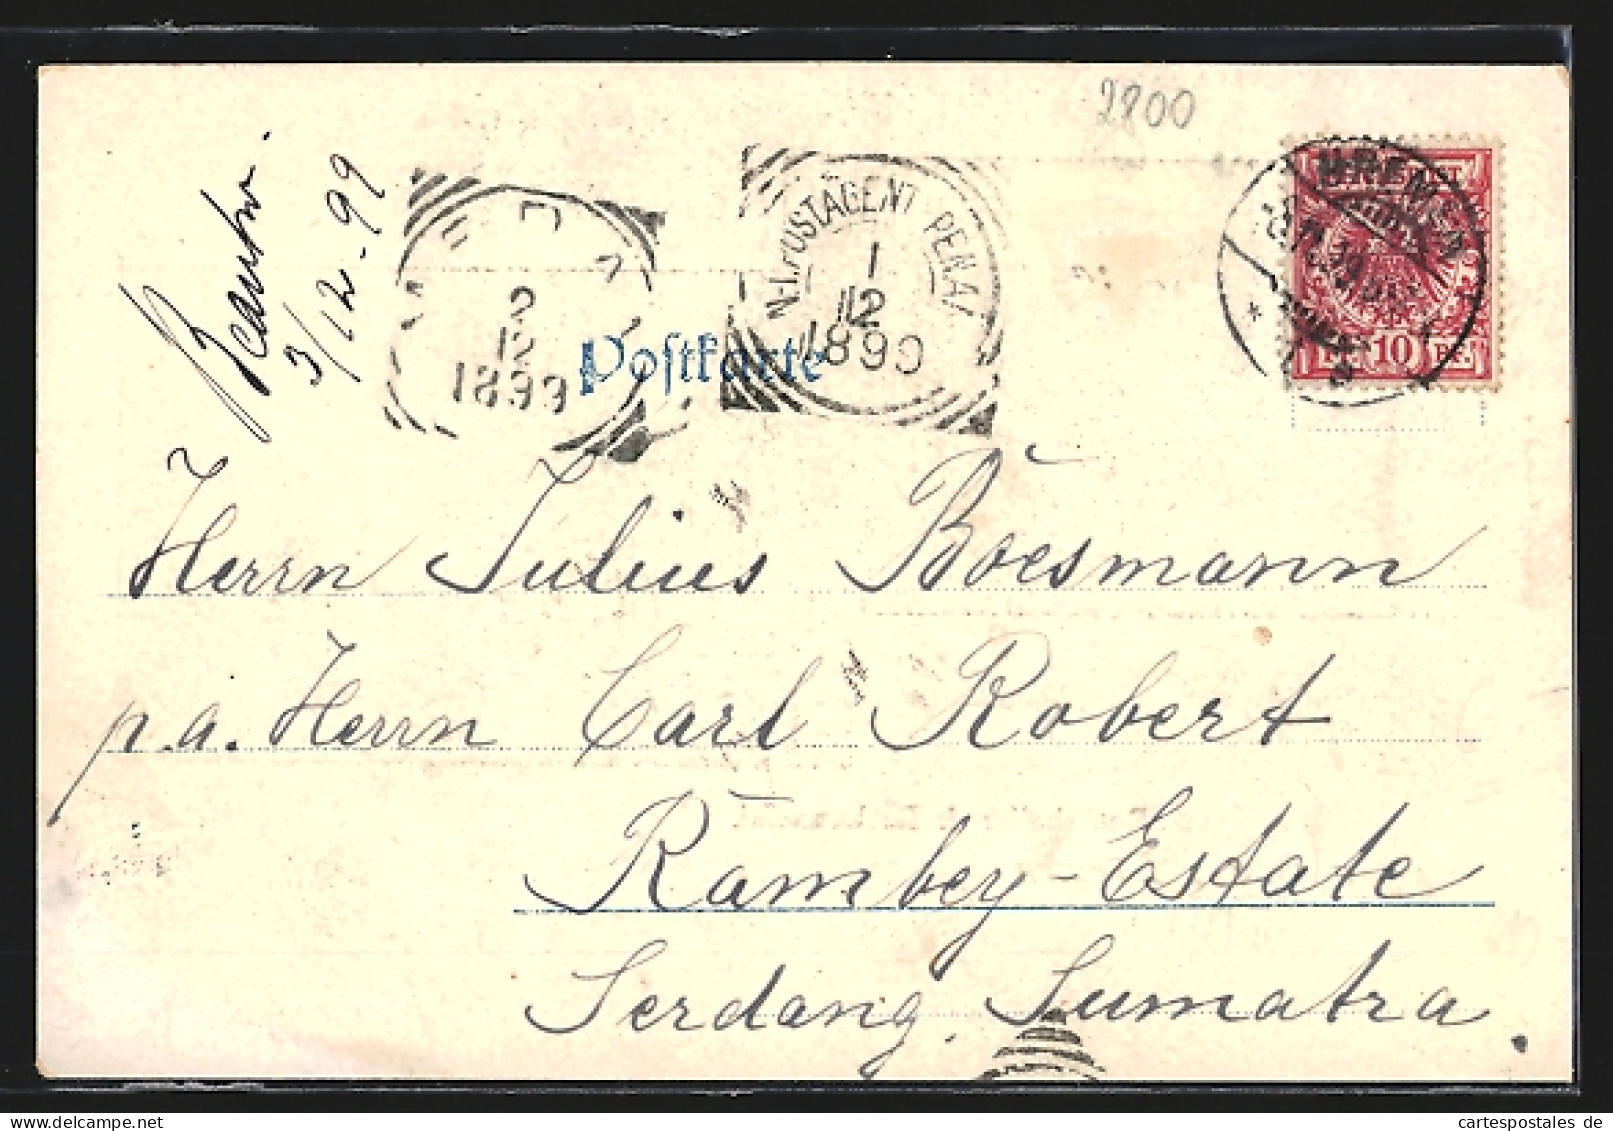 2800
3/12-99
BREMEN
REICHSPOST
10 PF.
N.I. POSTAGENT PENANG
1
12
1899
2
12
1899
Postkarte
Herrn Julius Boesmann
p.a. Herrn Carl Robert
Rambey-Estate
Serdang, Sumatra.
cartespostales.de